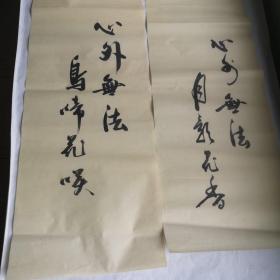 心外無法
月影花香
心外無法
鳥啼花咲